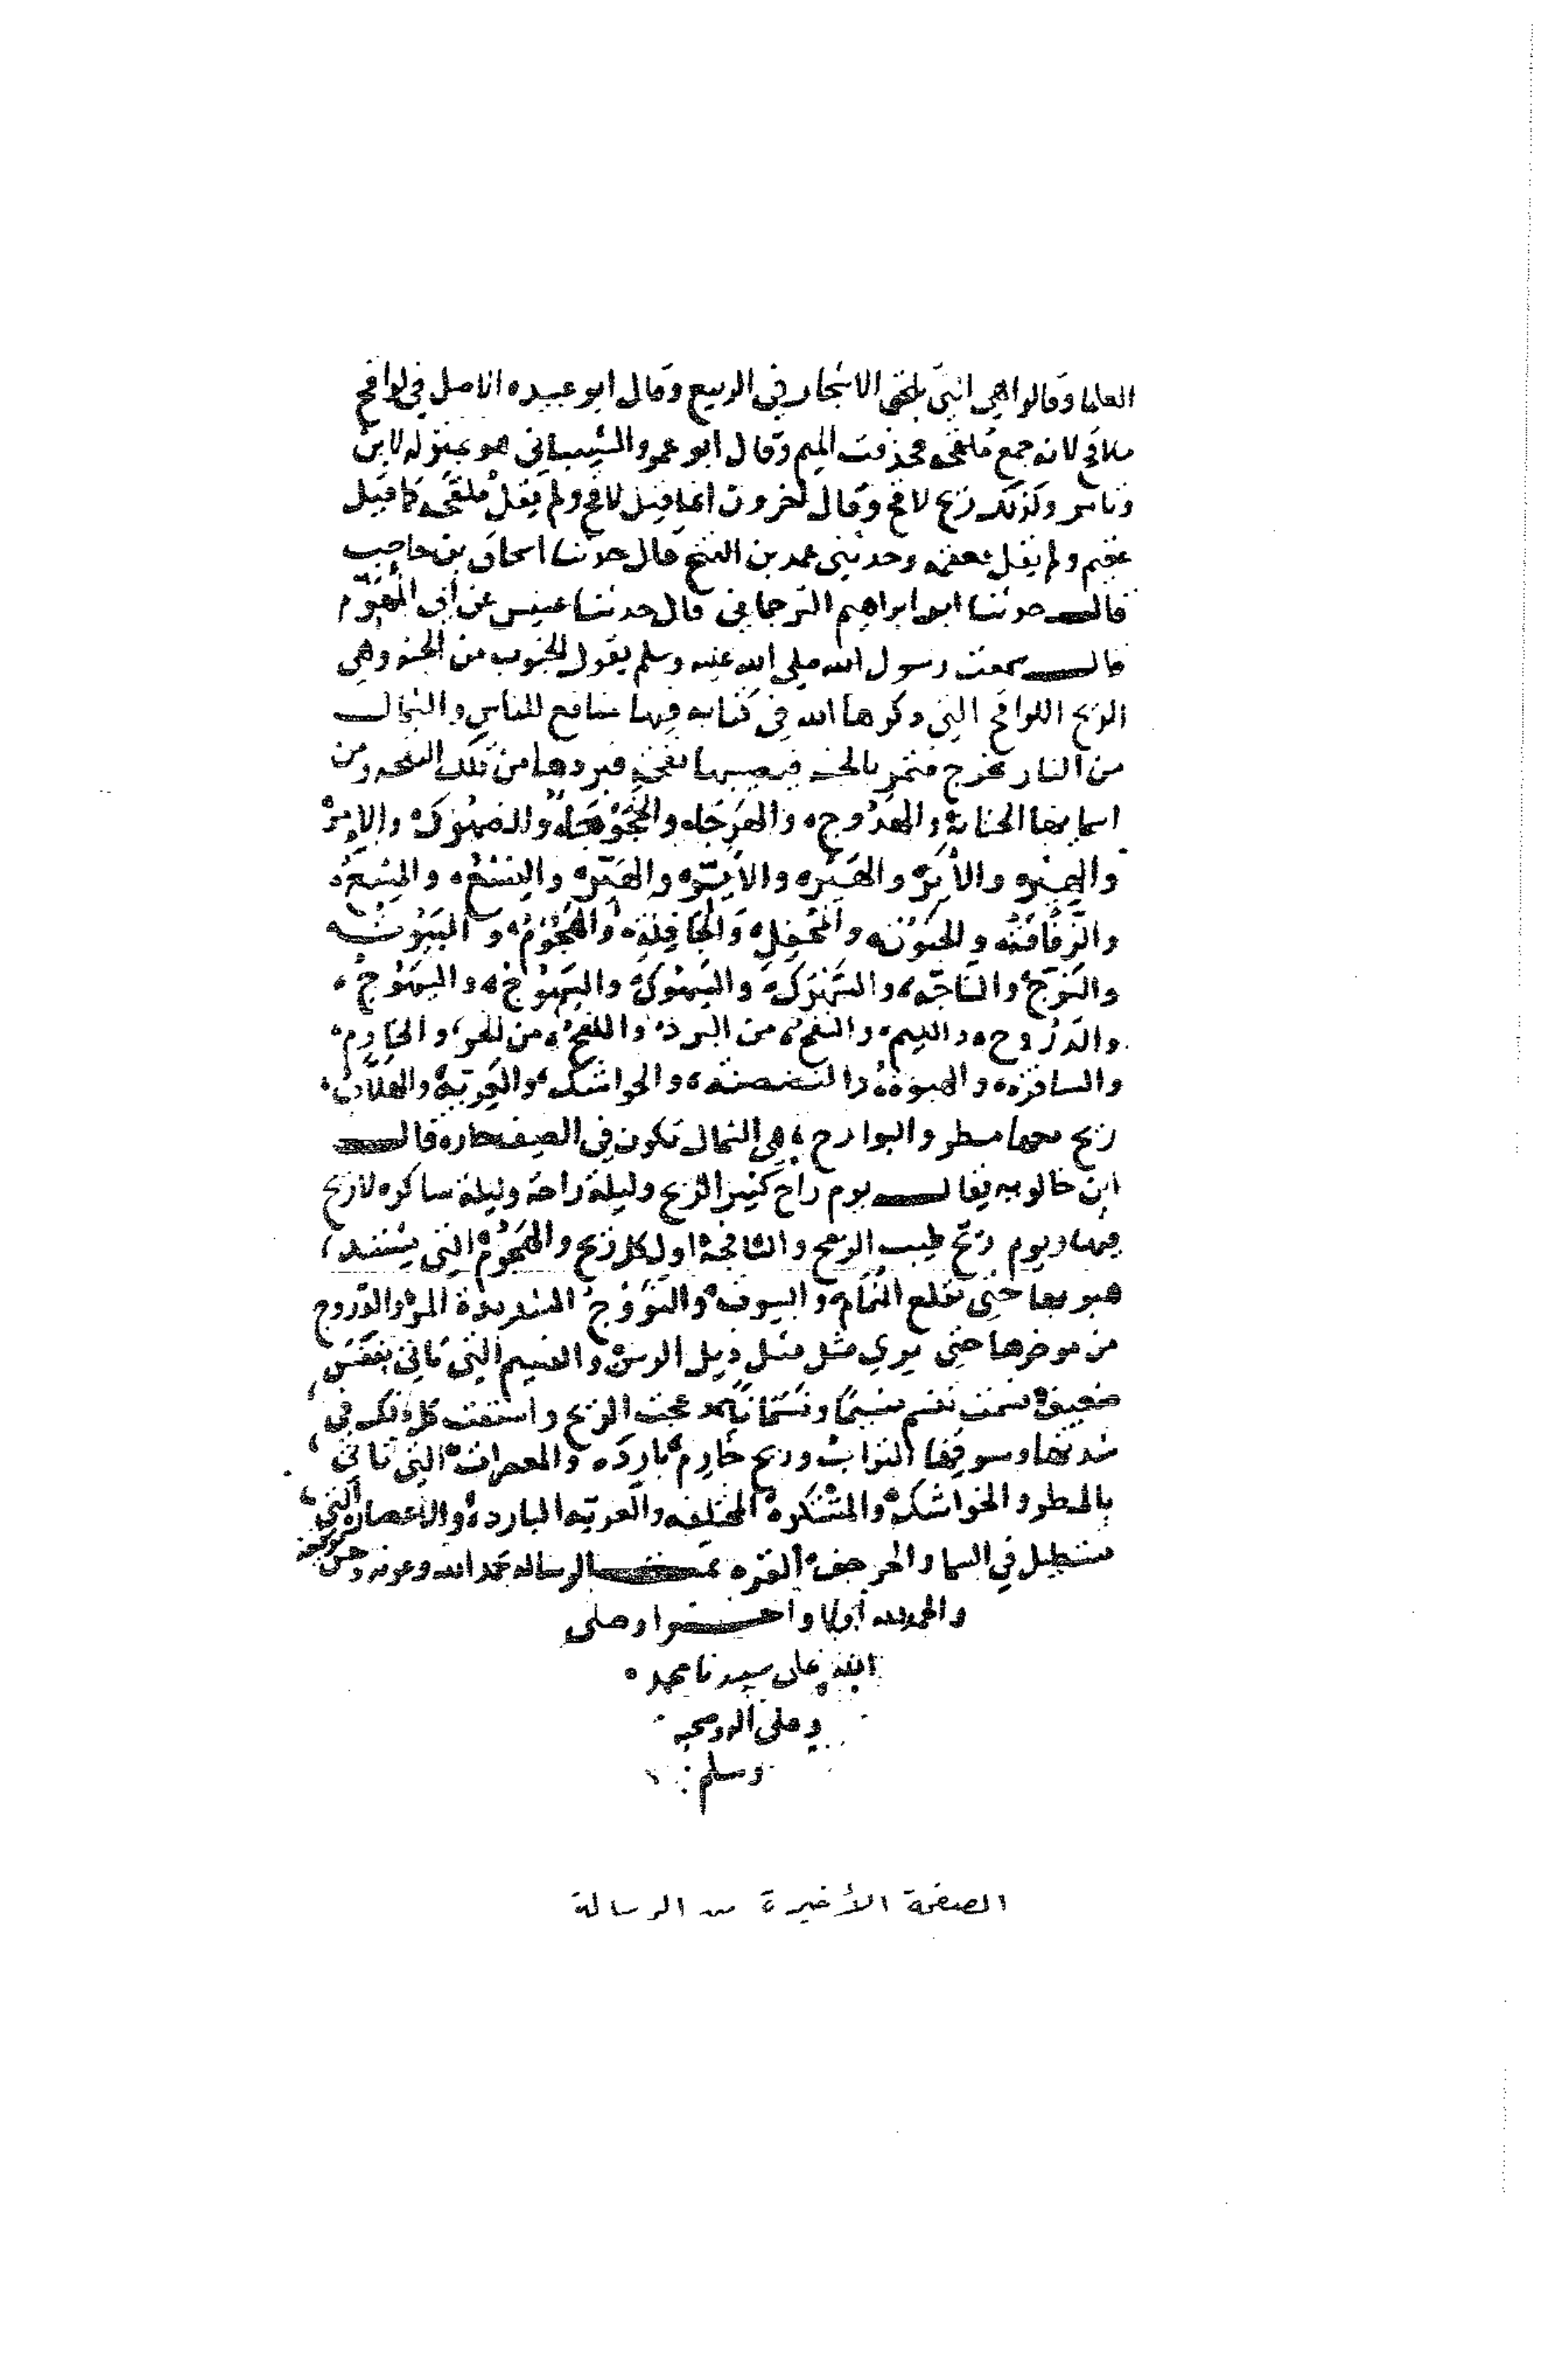 العلما وقالوا هي التي تلقح الاشجار في الربيع وقال ابو عبيده الاصل في لواقح
ملاقح لانه جمع ملقحه فحذفت الميم وقال ابو عمرو الشيباني هو بمنزله لابن
وتامر وكذلك ريح لاقح وقال اخرون انما قيل لاقح ولم يقل ملقحه كما قيل
عقيم ولم يقل معقمه وحدثني محمد بن الفتح قال حدثنا اسحاق بن حاجب
قال حدثنا ابو ابراهيم الترجماني قال حدثنا عبيس عن ابي المهزم
قال سمعت رسول الله صلى الله عليه وسلم يقول الجنوب من الجنه وهي
الريح اللواقح التي ذكرها الله في كتابه فيها منافع للناس والشمال
من النار تخرج فتمر بالجنه فيصيبها نفحه فبردها من تلك النفحه ومن
اسمايها الحنانة والهدوج والعرجله والخجوجاة والصهوك والاير
والهير والاير والهير والاير والهير والنسع والمسع
والزفافه والحنونه والمحفل والجافلة والهجوم
والنوج والناجه والسهوكه والسيهوك والسيهوج
والدروج والنسيم والنفح من البرد واللفح من الحر والخارم
والسافره والهبوة والحواشك والعرية
ريح معها مطر والبوارح هي الشمال تكون في الصيف حاره قال
ابن خالويه يقال يوم راح كثير الريح وليلة راحة وليلة ساكره لا ريح
فيها ويوم ريح طيب الريح والنافجة اول كل ريح والهجوم التي يشتد
هبوبها حتى تقلع الثمام والبيوت والنؤوج الشديدة المر والدروج
من موخرها حتى يرى مثل ذيل الرسن والنسيم التي تاتي بنفس
ضعيف نسمت تنسم نسيما ونسمانا عجت الريح واستفت كل ذلك في
شدتها وسوقها التراب وريح خارم باردة والمعصرات التي تاتي
بالمطر والحواشك والمشتكره المختلفه والعريه البارده والاعصار التي
تستطيل في السما والحرجف القره تمت الرسالة بحمد الله وعونه وحسن توفيقه
والحمد لله اولا واخرا وصلى
الله على سيدنا محمد
وعلى اله وصحبه
وسلم
الصفحة الأخيرة من الرسالة